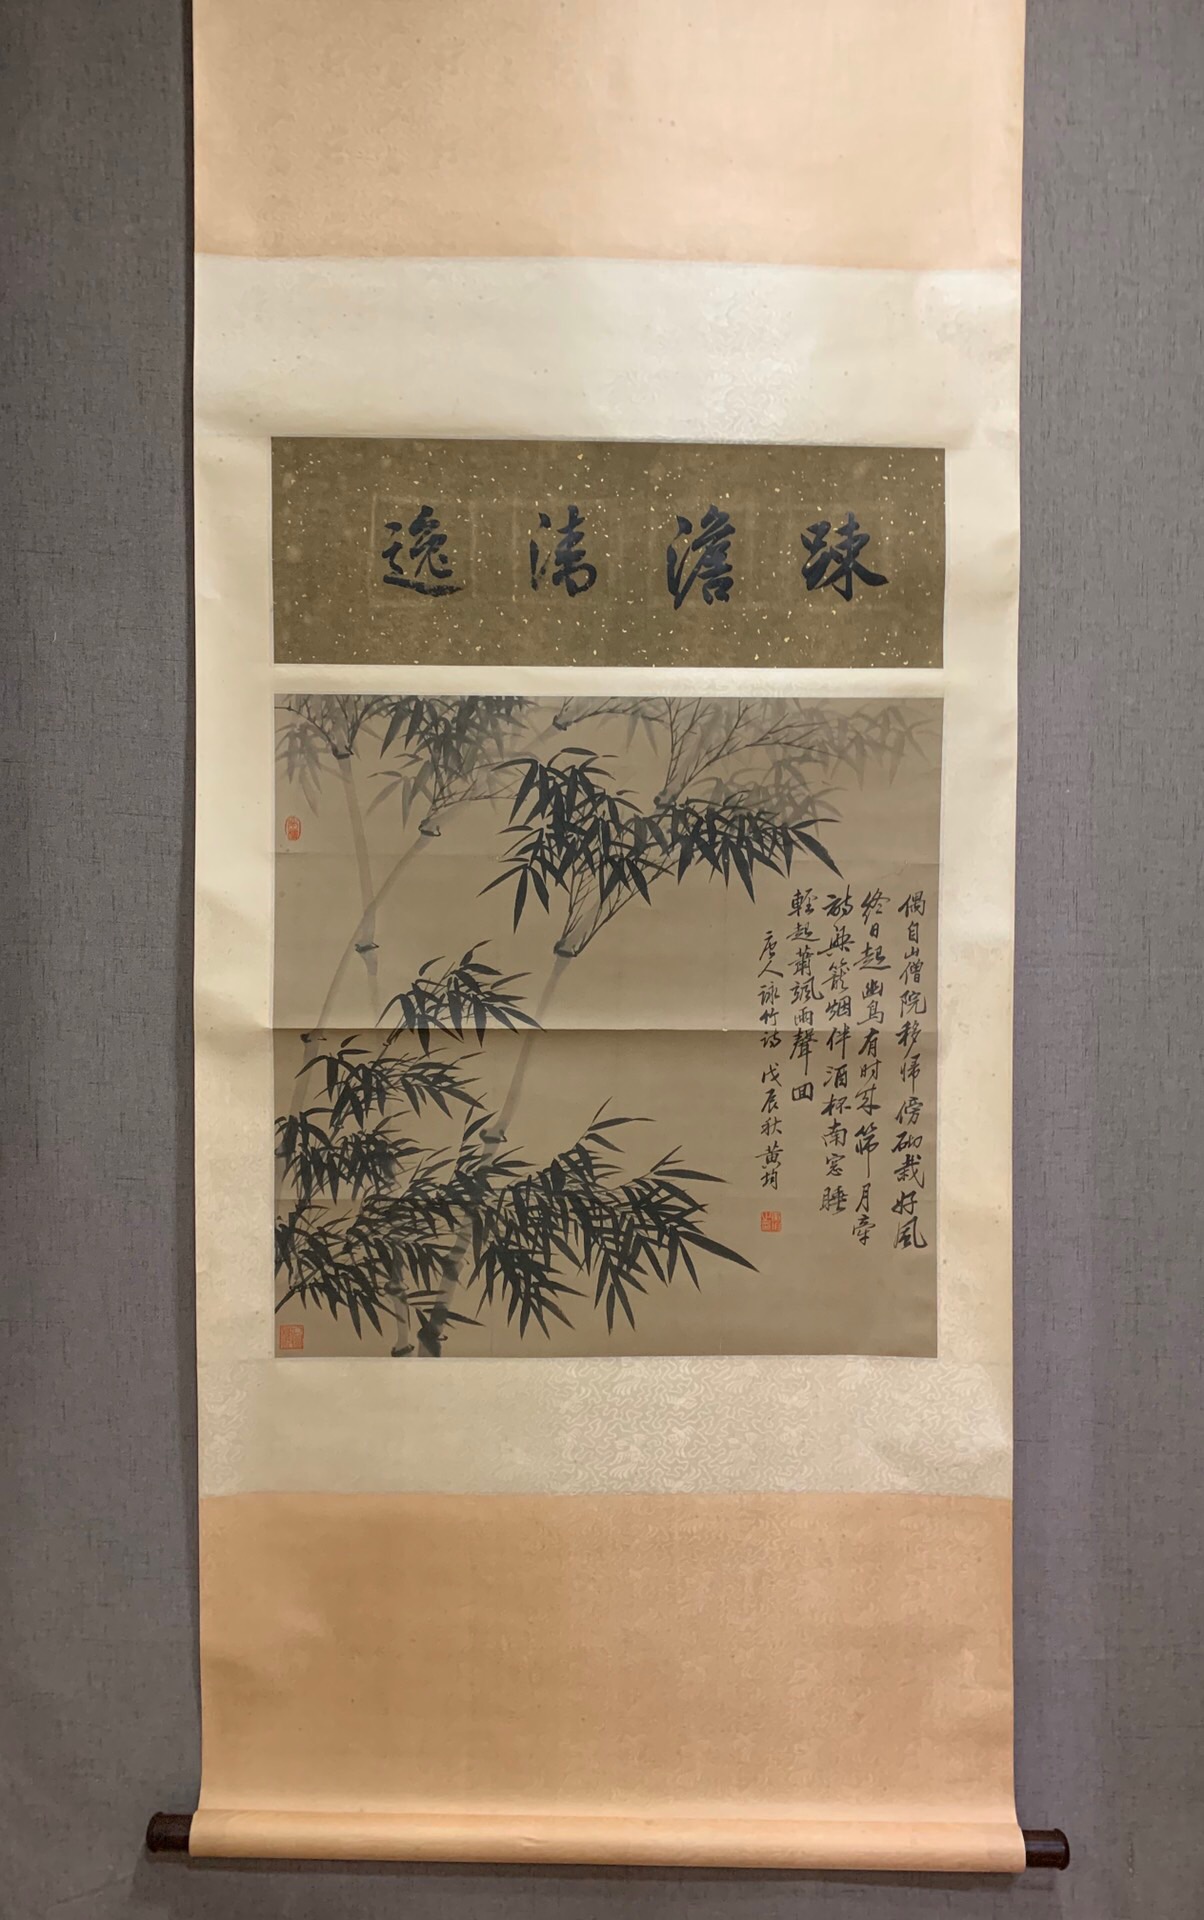 疎澹清逸
偶自山僧院移歸傍砌栽好風
終日起幽鳥有时來篩月牽
詩興籠烟伴酒杯南窓睡
輕起蕭颯雨聲回
唐人詠竹詩 戊辰秋 黄均